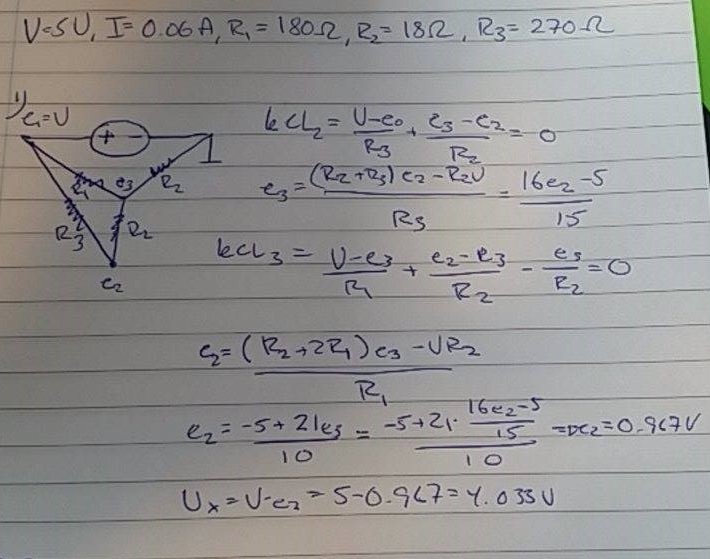 V=5V, I=0.06A, R₁=180Ω, R₂=18Ω, R₃=270Ω
1) e₁=V
+ -
R₁ e₃ R₂
R₃ R₂
e₂
KCL₂ = (V-e₀)/R₃ + (e₃-e₂)/R₂ = 0
e₃ = ((R₂+R₃)e₂-R₂V)/R₃ = (16e₂-5)/15
KCL₃ = (V-e₃)/R₁ + (e₂-e₃)/R₂ - e₃/R₂ = 0
e₂ = ((R₂+2R₁)e₃-VR₂)/R₁
e₂ = (-5+21e₃)/10 = (-5+21·(16e₂-5)/15)/10 => e₂=0.967V
Uₓ=V-e₂=5-0.967=4.033V